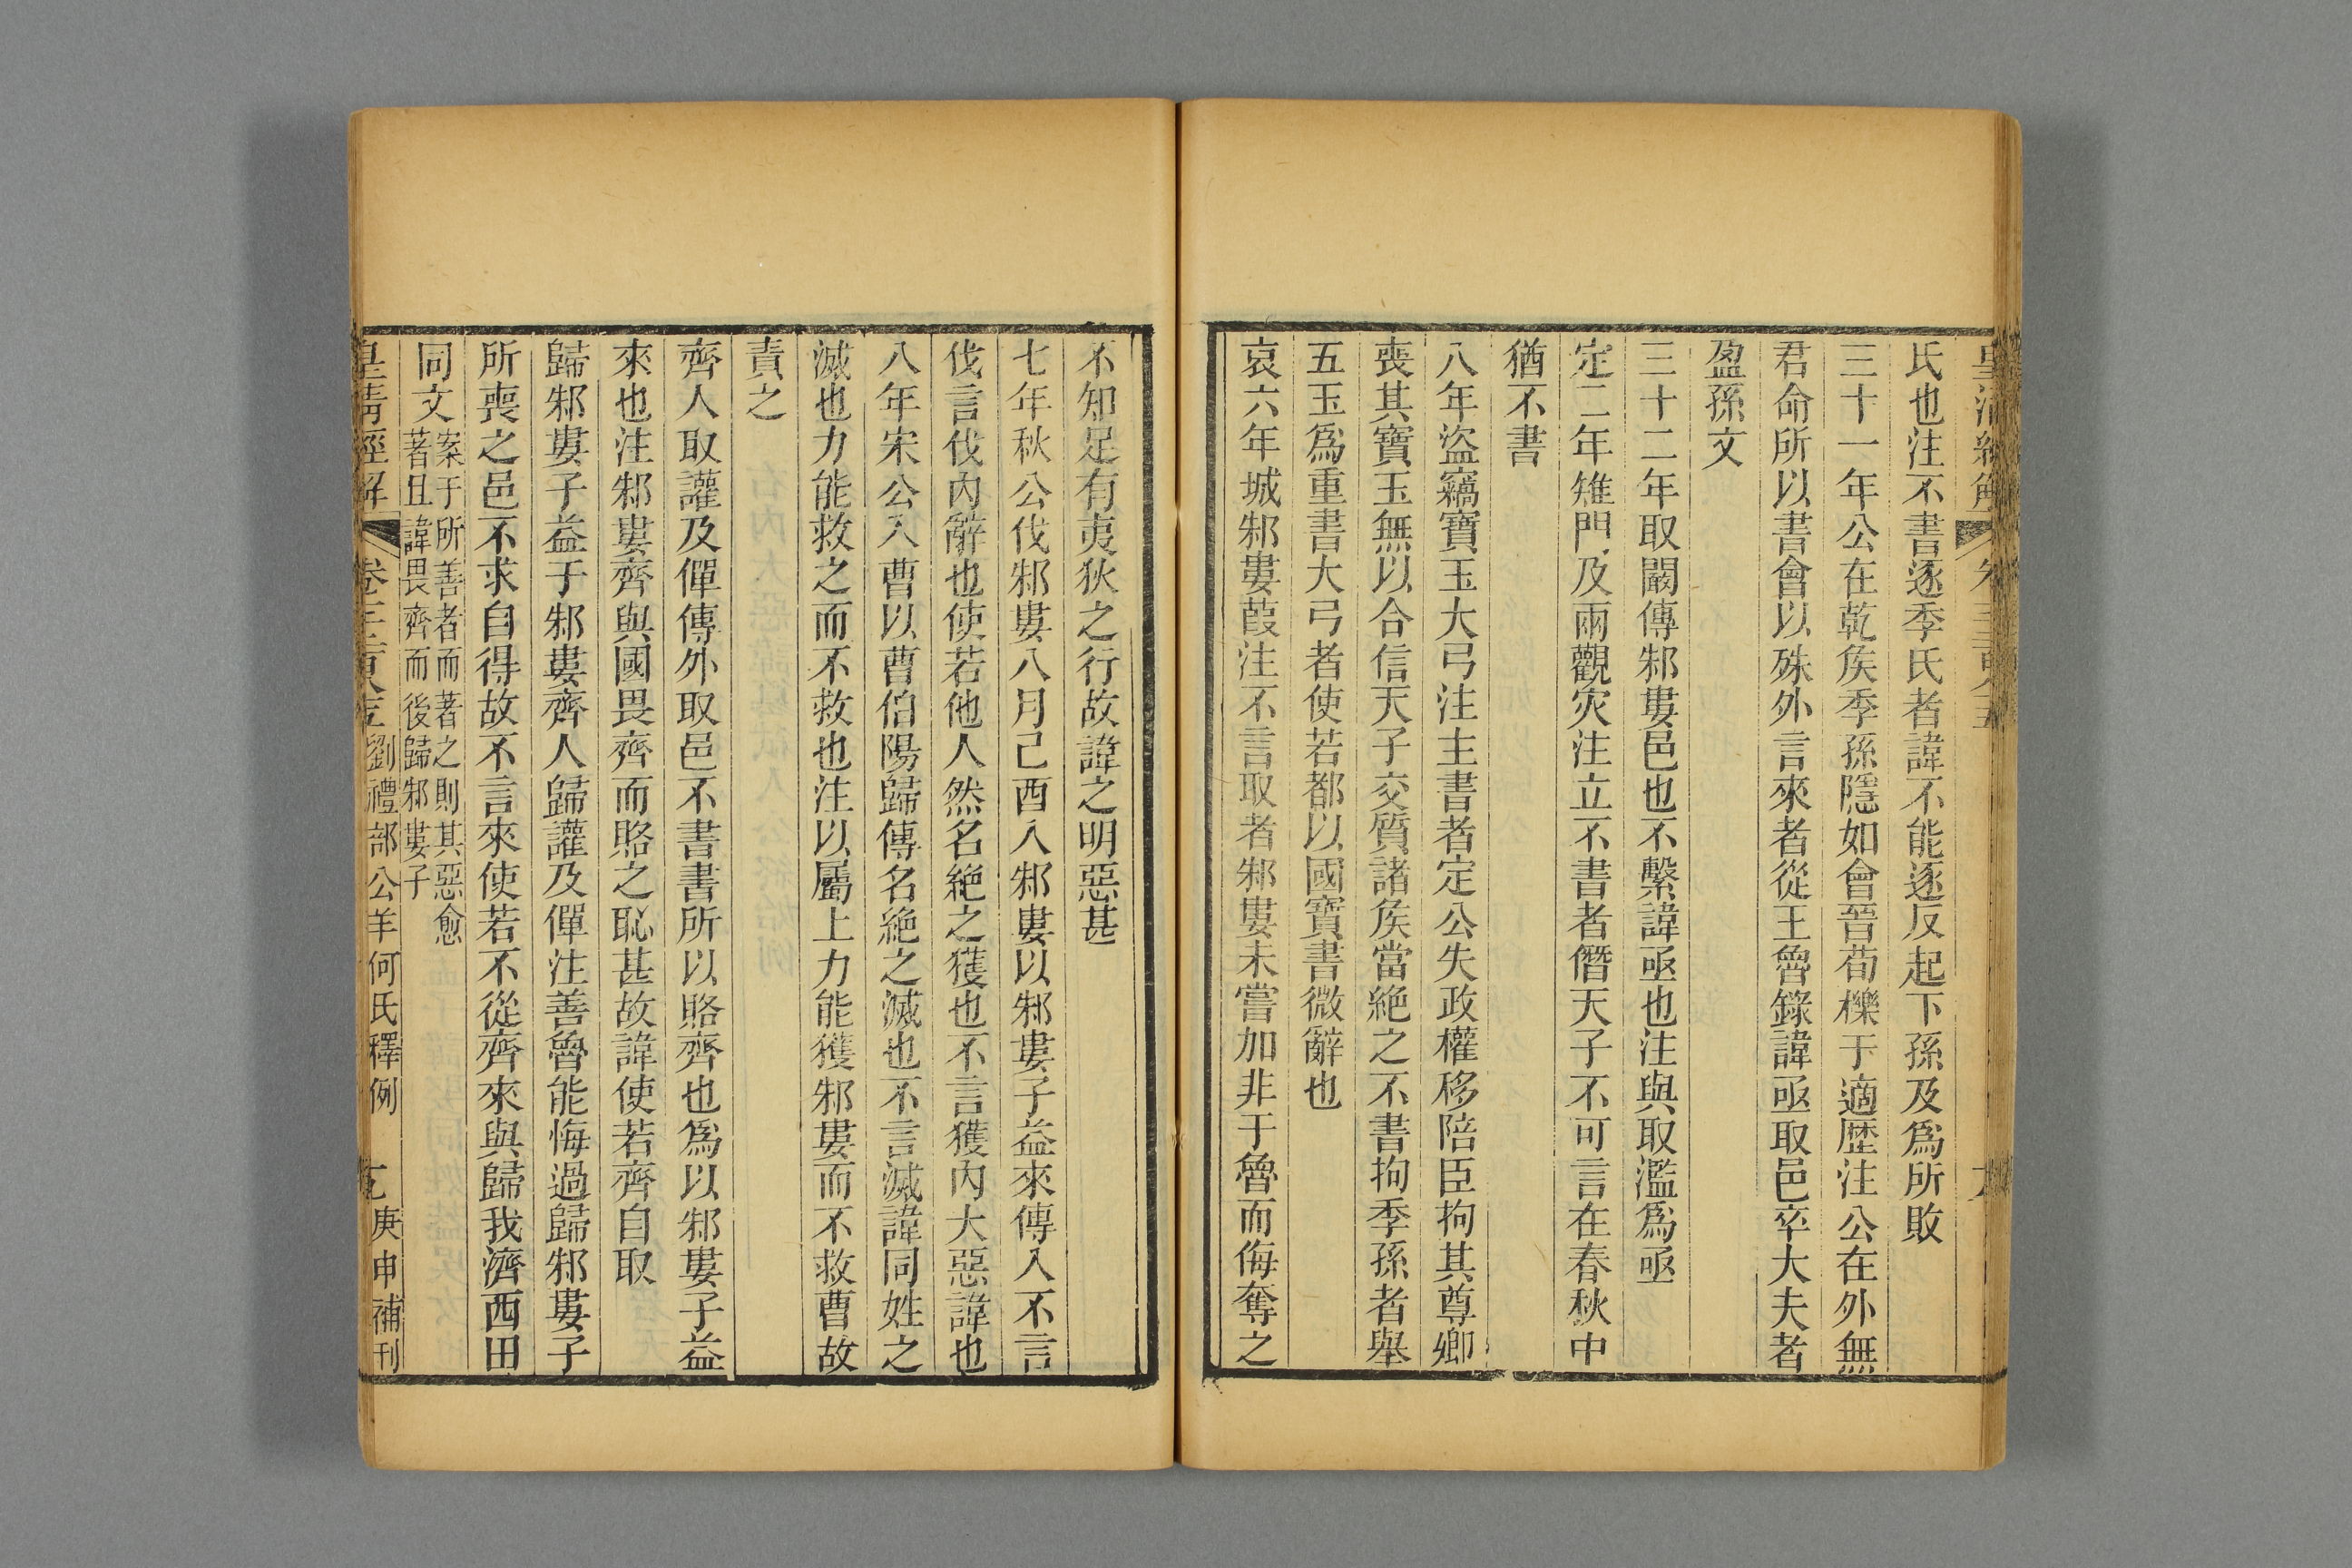 氏也注不書逐季氏者諱不能逐反起下孫及爲所敗
三十一年公在乾矦季孫隱如會晉荀櫟于適歴注公在外無
君命所以書會以殊外言來者從王魯錄諱亟取邑卒大夫者
盈孫文
三十二年取闞傳邾婁邑也不繫諱亟也注與取濫爲亟
定二年雉門及兩觀災注立不書者僭天子不可言在春秋中
猶不書
八年盜竊寶玉大弓注主書者定公失政權移陪臣拘其尊卿
喪其寶玉無以合信天子交質諸矦當絶之不書拘季孫者舉
五玉爲重書大弓者使若都以國寶書微辭也
哀六年城邾婁葭注不言取者邾婁未嘗加非于魯而侮奪之
不知足有夷狄之行故諱之明惡甚
七年秋公伐邾婁八月己酉入邾婁以邾婁子益來傳入不言
伐言伐內辭也使若他人然名絶之獲也不言獲內大惡諱也
八年宋公入曹以曹伯陽歸傳名絶之滅也不言滅諱同姓之
滅也力能救之而不救也注以屬上力能獲邾婁而不救曹故
責之
齊人取讙及僤傳外取邑不書書所以賂齊也爲以邾婁子益
來也注邾婁齊與國畏齊而賂之恥甚故諱使若齊自取
歸邾婁子益于邾婁齊人歸讙及僤注善魯能悔過歸邾婁子
所喪之邑不求自得故不言來使若不從齊來與歸我濟西田
同文
案于所善者而著之則其惡愈
著且諱畏齊而後歸邾婁子
皇清經解 卷 劉禮部公羊何氏釋例 庚申補刊